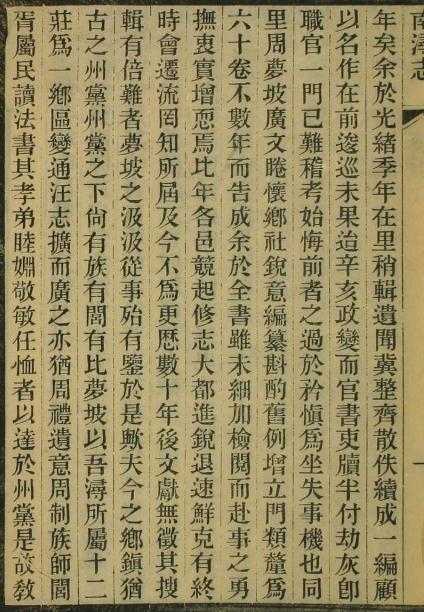 南潯志
年矣余於光緒季年在里稍輯遺聞冀整齊散佚續成一編顧
以名作在前逡巡未果迨辛亥政變而官書吏牘半付劫灰卽
職官一門已難稽考始悔前者之過於矜愼爲坐失事機也同
里周夢坡廣文睠懷鄉社銳意編纂斟酌舊例增立門類釐爲
六十卷不數年而告成余於全書雖未細加檢閱而赴事之勇
撫衷實增恧焉比年各邑競起修志大都進銳退速鮮克有終
時會遷流罔知所屆及今不爲更歷數十年後文獻無徵其搜
輯有倍難者夢坡之汲汲從事殆有鑒於是歟夫今之鄉鎭猶
古之州黨州黨之下尙有族有閭有比夢坡以吾潯所屬十二
莊爲一鄉區變通汪志擴而廣之亦猶周禮遺意周制族師閭
胥屬民讀法書其孝弟睦婣敬敏任恤者以達於州黨是故敎